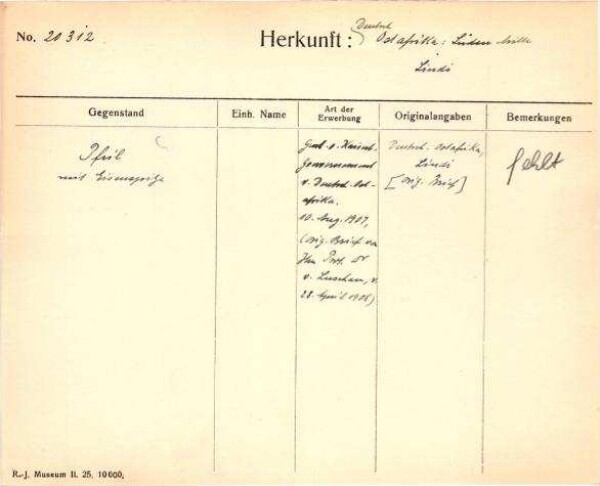 No. 20312
Herkunft: Deutsch Ostafrika: Süden Mitte
Lindi
Gegenstand
Einh. Name
Art der Erwerbung
Originalangaben
Bemerkungen
Pfeil
mit Eisenspitze
Gesch. v. Kaiserl.
Gouvernement
v. Deutsch-Ost-
afrika.
10. Aug. 1907,
(orig. Brief von
Hrn Prof. Dr
v. Luschan, v.
28. April 1906)
Deutsch-Ostafrika,
Lindi
[orig. Brief]
fehlt
R.-J. Museum II. 25. 10000.